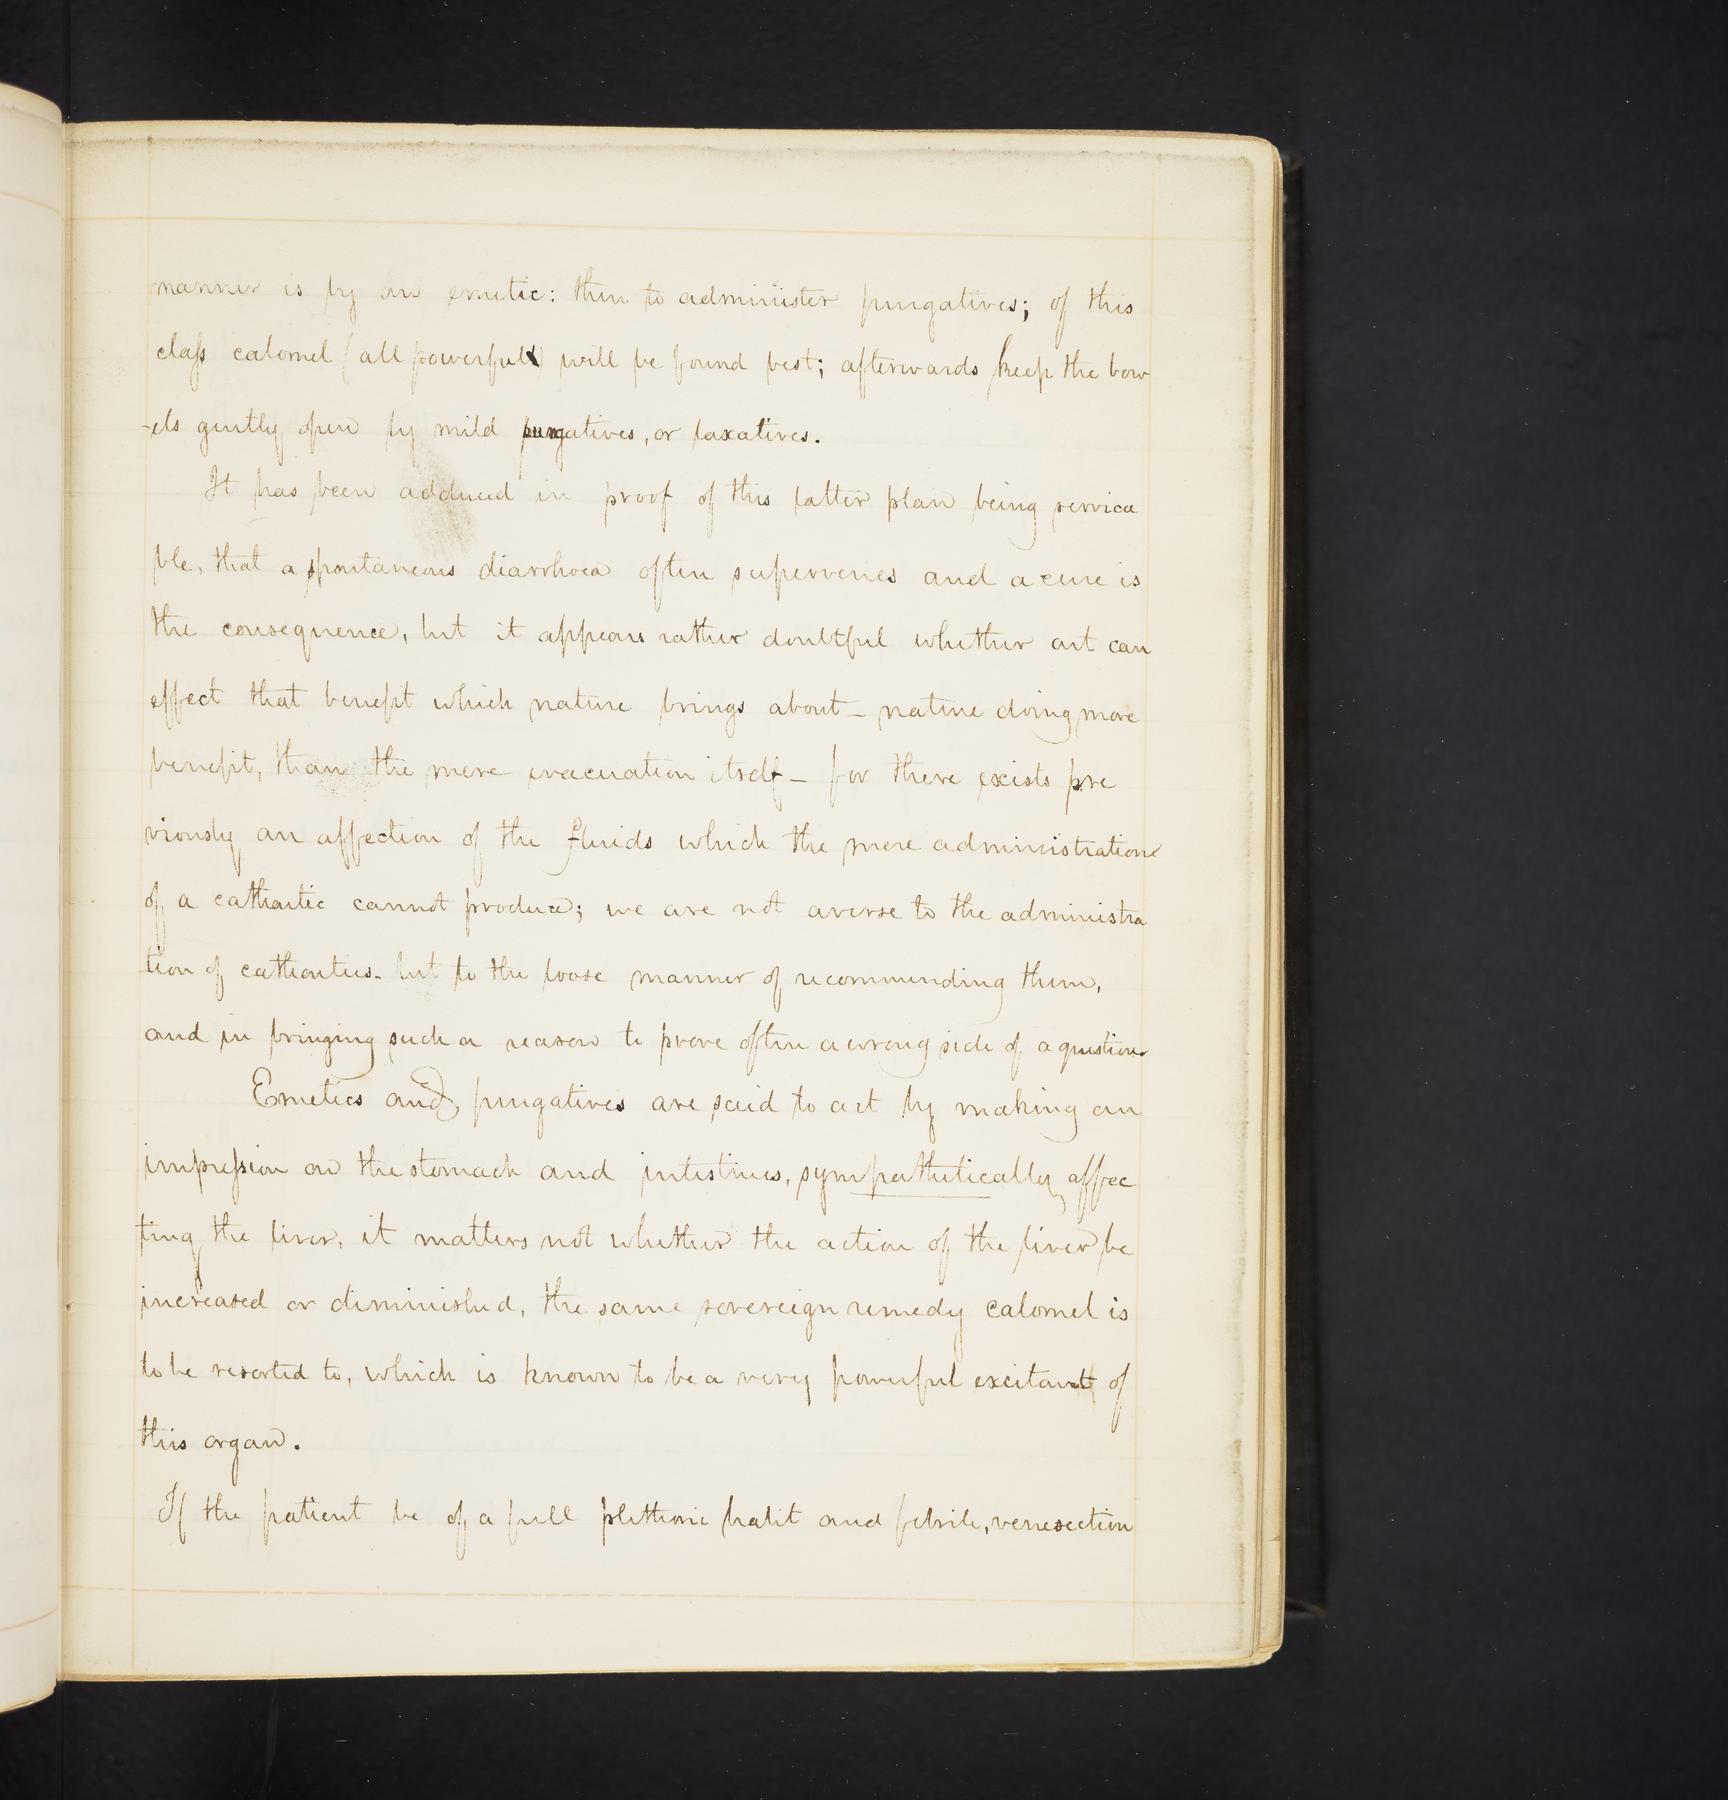 manner is by an emetic: then to administer purgatives; of this
class calomel (all powerful) will be found best; afterwards keep the bow
-els gently open by mild purgatives, or laxatives.
It has been adduced in proof of this latter plan being servica
ble, that a spontaneous diarrhoea often supervenes and a cure is
the consequence, but it appears rather doubtful whether art can
effect that benefit which nature brings about – nature doing more
benefit, than the mere evacuation itself – for there exists pre
viously an affection of the fluids which the mere administration
of a cathartic cannot produce; we are not averse to the administra
tion of cathartics. but to the loose manner of recommending them,
and in bringing such a reason to prove often a wrong side of a question
Emetics and, purgatives are said to act by making an
impression on the stomach and intestines, sympathetically affec
ting the liver, it matters not whether the action of the liver be
increased or diminished, the same sovereign remedy calomel is
to be resorted to, which is known to be a very powerful excitant of
this organ.
If the patient be of a full plethoric habit and febrile, venesection